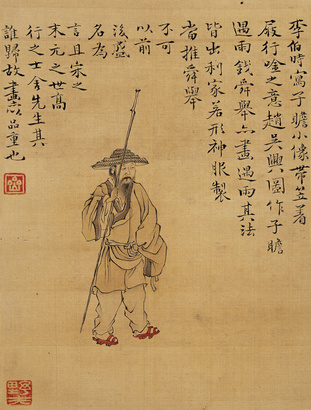 李伯時寫子瞻小像帶笠着
屐行吟之意趙吳興圖作子瞻
遇雨錢舜舉亦畫遇雨其法
皆出利家若形神服製
當推舜舉
不可
以前
後盛
名為
言且宋之
末元之世高
行之士舍先生其
誰歸故畫以品重也